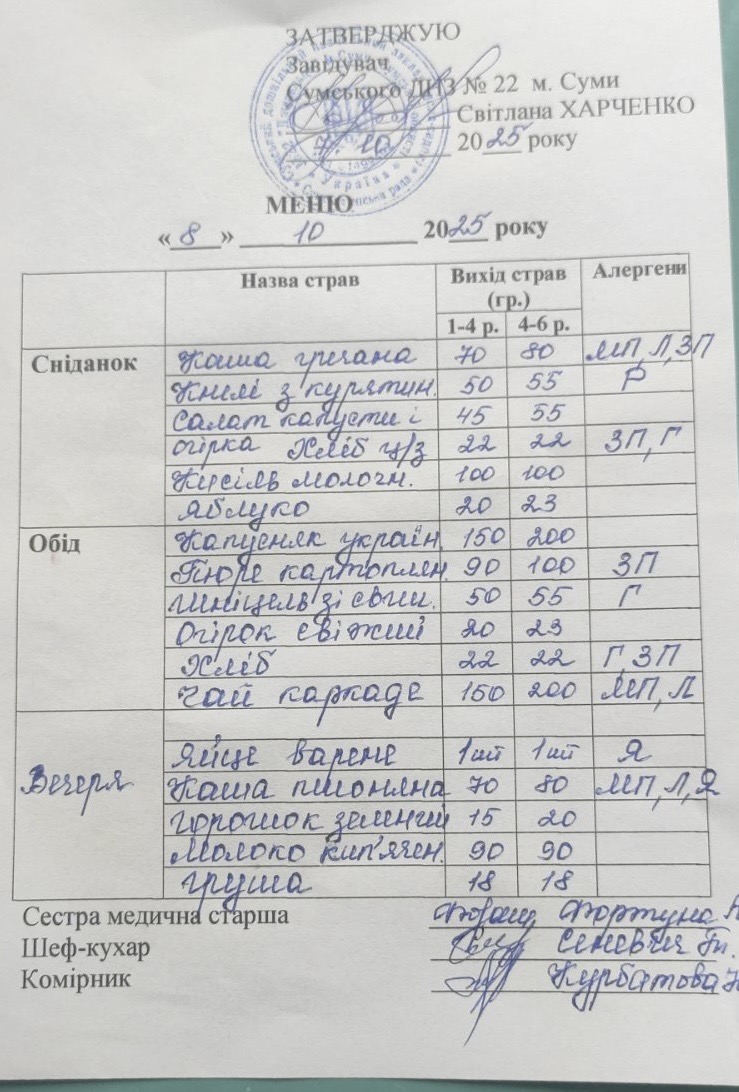 ЗАТВЕРДЖУЮ
Завідувач
Сумського ДНЗ № 22 м. Суми
Світлана ХАРЧЕНКО
7 10 2025 року
МЕНЮ
« 8 » 10 2025 року
Назва страв Вихід страв (гр.) Алергени
1-4 р. 4-6 р.
Сніданок Каша гречана 70 80 МП, Л, ЗП
Кнелі з курятин. 50 55 Р
Салат капусти і 45 55
огірка Хліб ц/з 22 22 ЗП, Г
Кисіль молочн. 100 100
Яблуко 20 23
Обід Капусняк україн. 150 200
Пюре картоплян. 90 100 ЗП
Шніцель зі свин. 50 55 Г
Огірок свіжий 20 23
Хліб 22 22 Г, ЗП
Чай каркаде 150 200 МП, Л
Вечеря
Яйце варене 1шт 1шт Я
Каша пшоняна 70 80 МП, Л, Я
Горошок зелений 15 20
Молоко кип'ячен. 90 90
Груша 18 18
Сестра медична старша Фортуна
Шеф-кухар
Комірник Курбатова